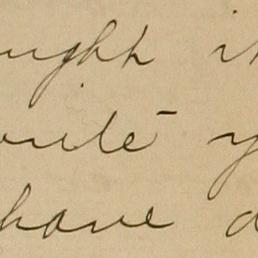 ught i
write y
have